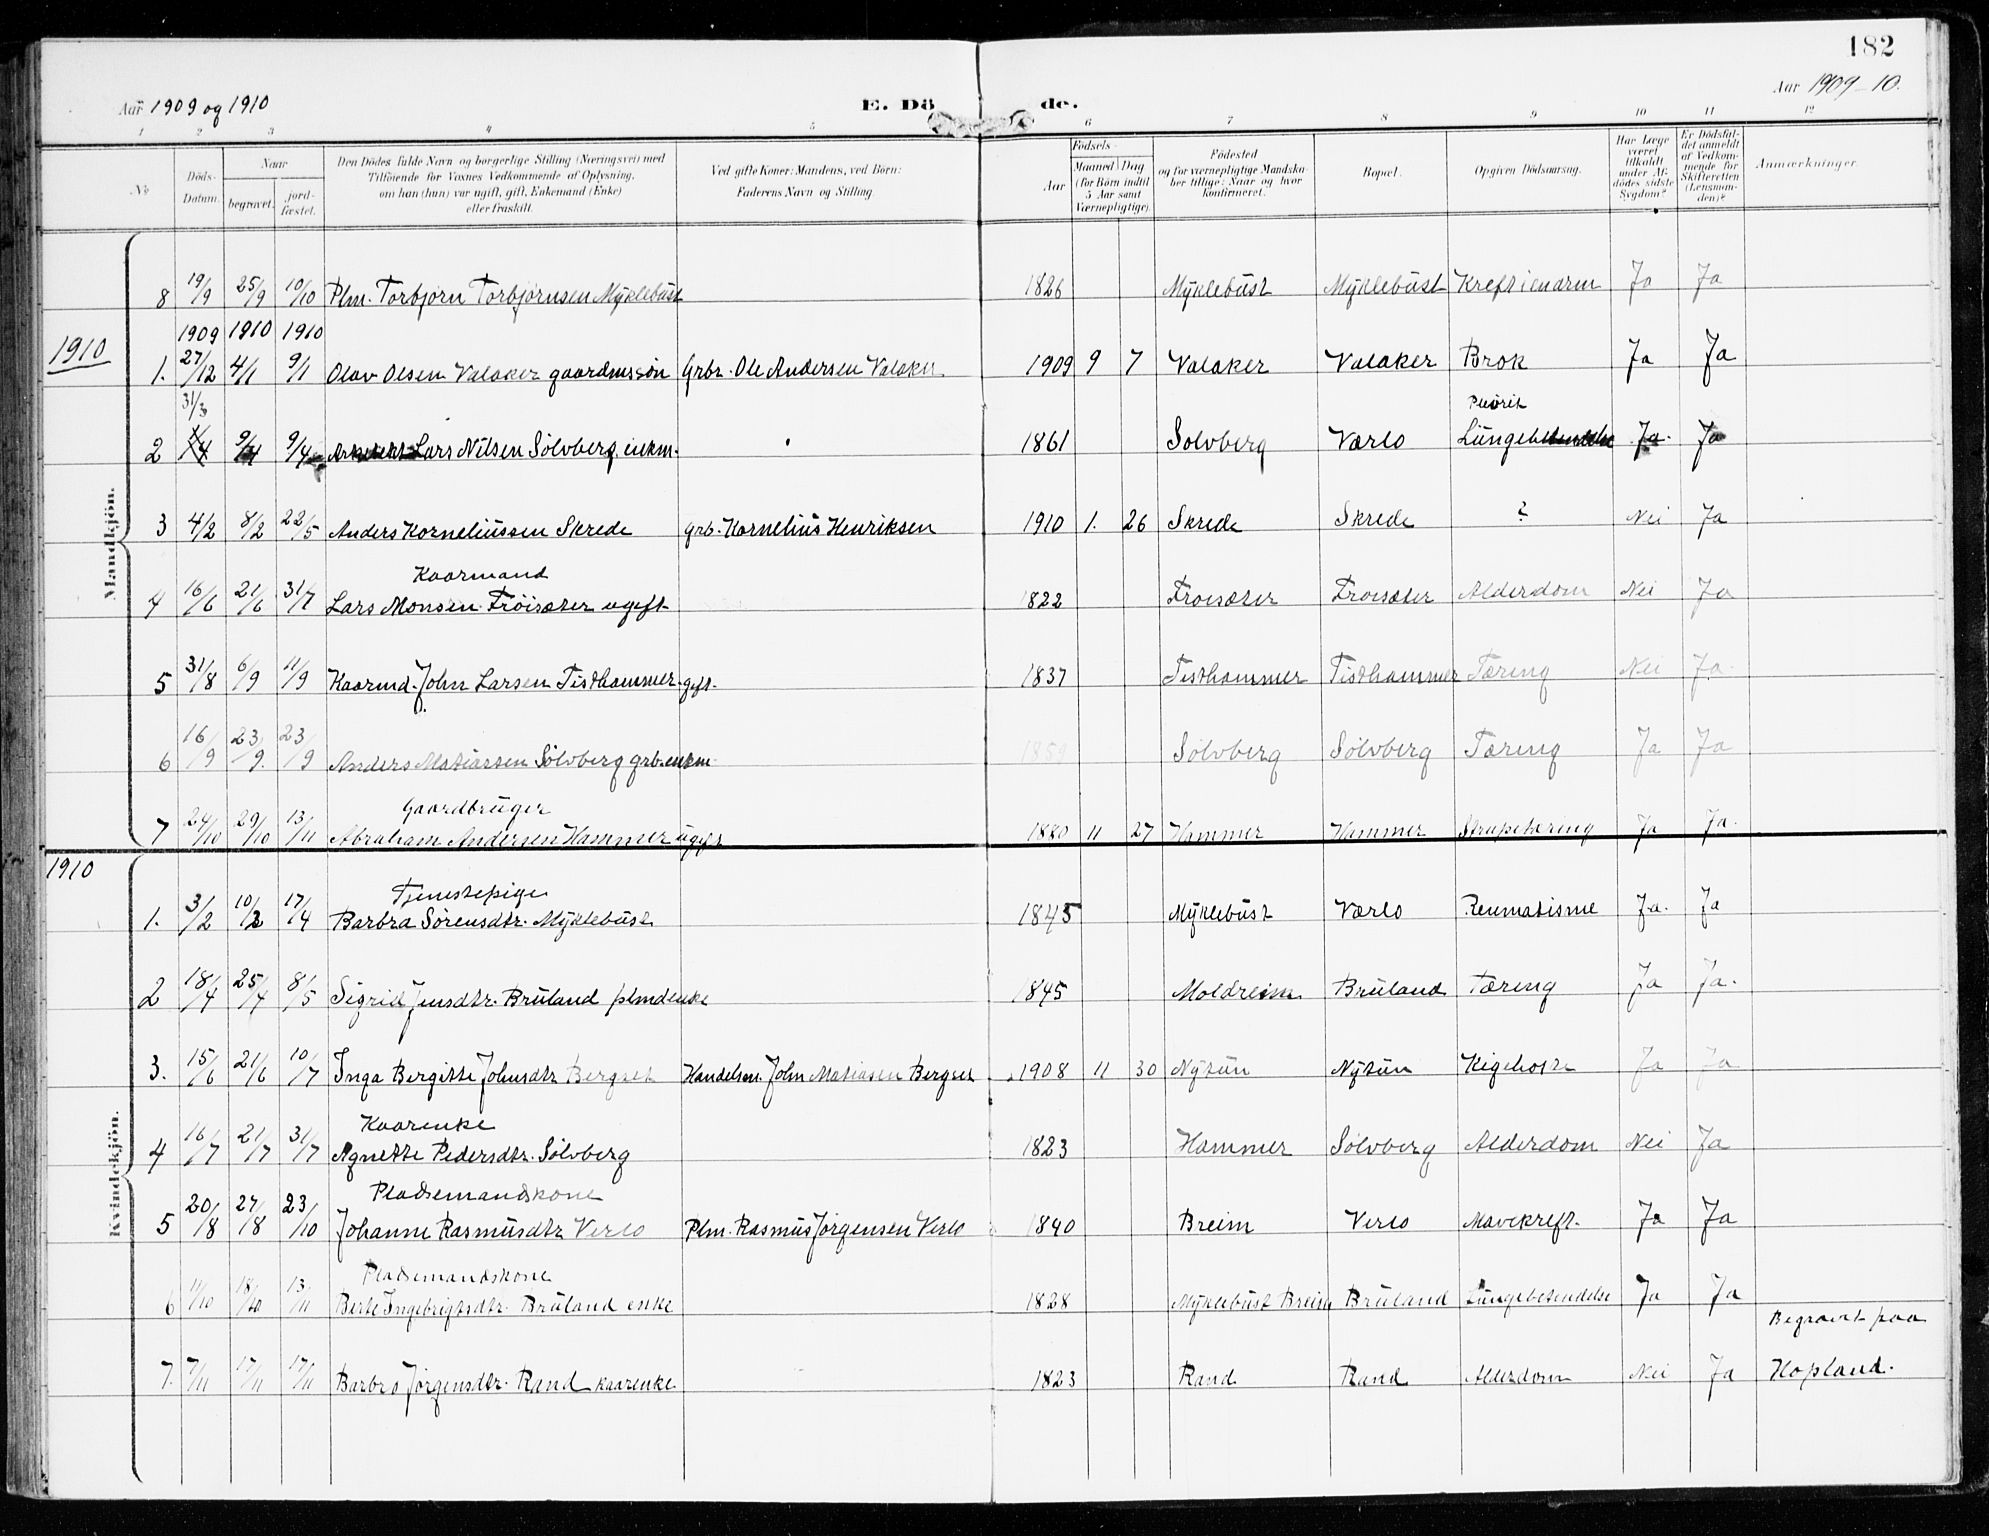 182
Aar 1909 og 1910
E. Dö de.
Aar 1909-10.
1 2 3 4 5 6 7 8 9 10 11 12
No
Döds-Datum.
Naar
begravet.
jord-fæstet.
Den Dödes fulde Navn og borgerlige Stilling (Næringsvei) med
Tilföiende for Voxnes Vedkommende af Oplysning,
om han (hun) var ugift, gift, Enkemand (Enke)
eller fraskilt.
Ved gifte Koner: Mandens, ved Börn:
Faderens Navn og Stilling.
Födsels-
Aar
Maaned Dag
(for Börn indtil
5 Aar samt
Værnepligtige).
Födested
og for værnepligtige Mandska-
ber tillige: Naar og hvor
konfirmeret.
Bopæl.
Opgiven Dödsaarsag.
Har Læge
været
tilkaldt
under Af-
dödes sidste
Sygdom?
Er Dödsfal-
det anmeldt
af Vedkom-
mende for
Skifteretten
(Lensman-
den)?
Anmærkninger.
Mandkjön.
8 19/9 25/9 10/10 Plm. Torbjörn Torbjörnsen Myklebust 1826 Myklebust Myklebust Kreft i enarm Ja Ja
1910
1909 1910 1910
1. 27/12 4/1 9/1 Olav Olsen Valaker gaardmssön Grbr. Ole Andersen Valaker 1909 9 7 Valaker Valaker Brok Ja Ja
31/3
Pleurit
2 9/4 9/4 Lars Nilsen Sölvberg, enkm. 1861 Solvberg Værlo Ja Ja
3 4/2 8/2 22/5 Anders Korneliussen Skrede grb. Kornelius Henriksen 1910 1. 26 Skrede Skrede ? Nei Ja
Kaarmand
4 16/6 21/6 31/7 Lars Monsen Fröisæter ugift 1822 Froisæter Froisæter Alderdom Nei Ja
5 31/8 6/9 11/9 Kaarmd. John Larsen Tisthammer. gift. 1837 Tisthammer Tisthammer Tæring Nei Ja
6 16/9 23/9. 23/9 Anders Matiassen Sölvberg grb. enkm. 1859 Sölvberg Sölvberg Tæring Ja Ja
Gaardbruger
7 24/10 29/10 13/11 Abraham Andersen Hammer ugift 1880 11 27 Hammer Hammer Strupetæring Ja Ja.
1910
Kvindekjön.
Tjenestepige
1. 3/2 10/3 17/4 Barbra Sörensdtr. Myklebust 1845 Myklebust Værlo Reumatisme Ja. Ja
2 18/4 25/4 8/5 Sigrid Jensdtr. Bruland plmdenke 1845 Moldreim Bruland Tæring Ja Ja.
3. 15/6 21/6 10/7 Inga Bergitte Johnsdtr Bergset Handelsm. John Matiasen Bergset 1908 11 30 Nytun Nytun Kigehoste Ja Ja
Kaarenke
4 16/7 21/7 31/7 Agnette Pedersdtr. Sölvberg 1823 Hammer Sölvberg Alderdom Nei Ja
Pladsemandskone
5 20/8 27/8 23/10 Johanne Rasmusdtr Verlo Plm. Rasmus Jörgensen Verlo 1840 Breim Verlo Mavekreft. Ja Ja
Pladsemandskone
6 11/10 18/10 13/11 Berte Ingebrigtsdtr. Bruland enke 1828 Myklebust Breim Bruland Lungebetendelse Ja Ja
Begravet paa
7. 7/11 17/11 17/11 Barbro Jörgensdtr. Rand kaarenke 1823 Rand Rand Alderdom Nei Ja Hopland.